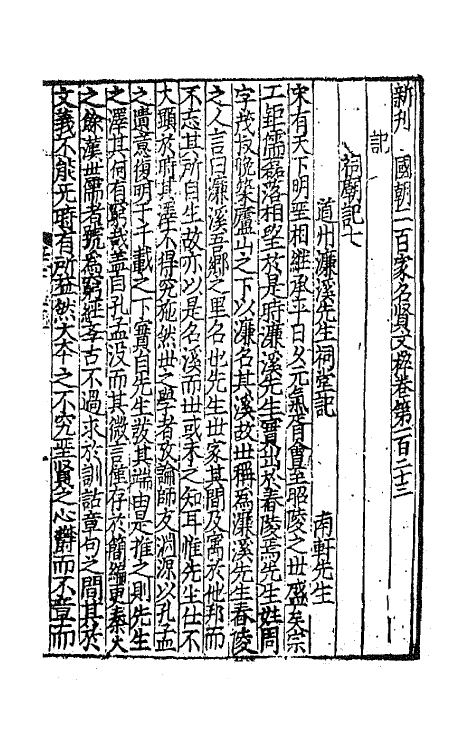 新刊國朝二百家名賢文粹卷第一百二十三
記
祠廟記七
道州濂溪先生祠堂記　南軒先生
宋有天下明聖相繼承平日久元氣胥會至昭陵之世盛矣宗
工鉅儒磊落相望於是時濂溪先生實出於舂陵焉先生姓周
字茂叔晚築廬山之下以濂名其溪故世稱為濂溪先生舂陵
之人言曰濂溪吾鄉之里名也先生世家其間及寓於他邦而
不忘其所自生故亦以是名溪而世或未之知耳惟先生仕不
大顯於時其澤不得究施然世之學者攷論師友淵源以孔孟
之遺意復明于千載之下實自先生發其端由是推之則先生
之澤其何有窮哉蓋自孔孟沒而其微言僅存於簡編更秦火
之餘漢世儒者號為窮經孝古不過求於訓詁章句之間其於
文義不能无時有所益然大本之不究聖賢之心鬱而不章而